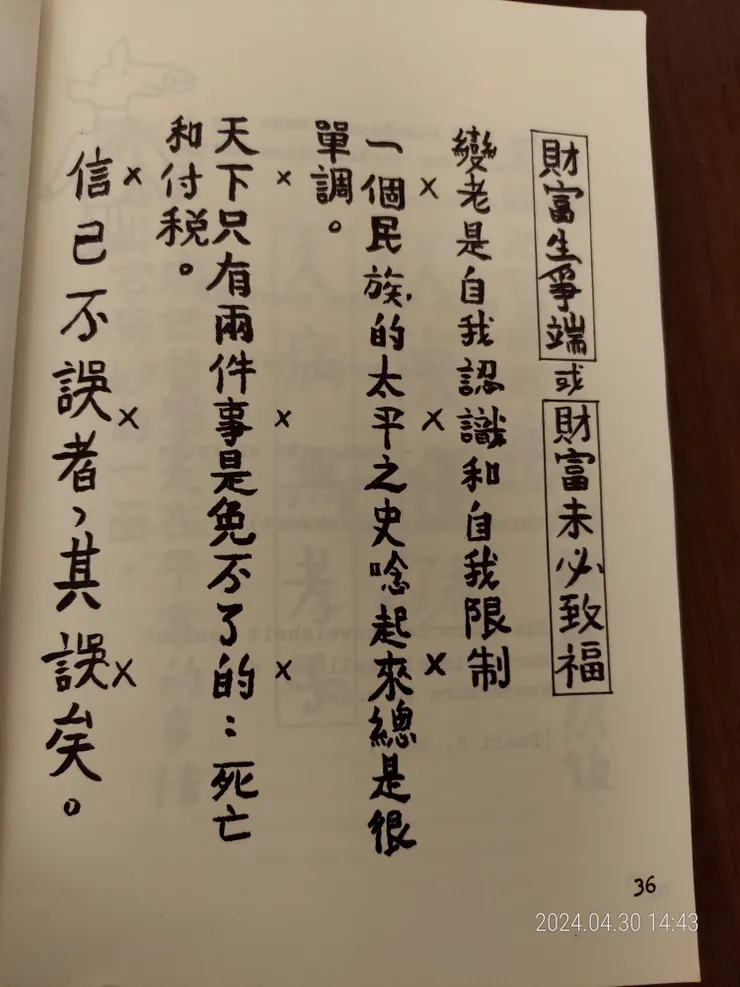 財富生爭端或財富未必致福
變老是自我認識和自我限制
x x
一個民族的太平之史唸起來總是很
單調。
x x x
天下只有兩件事是免不了的:死亡
和付税。
x x x
信己不誤者,其誤矣。
36
2024.04.30 14:43